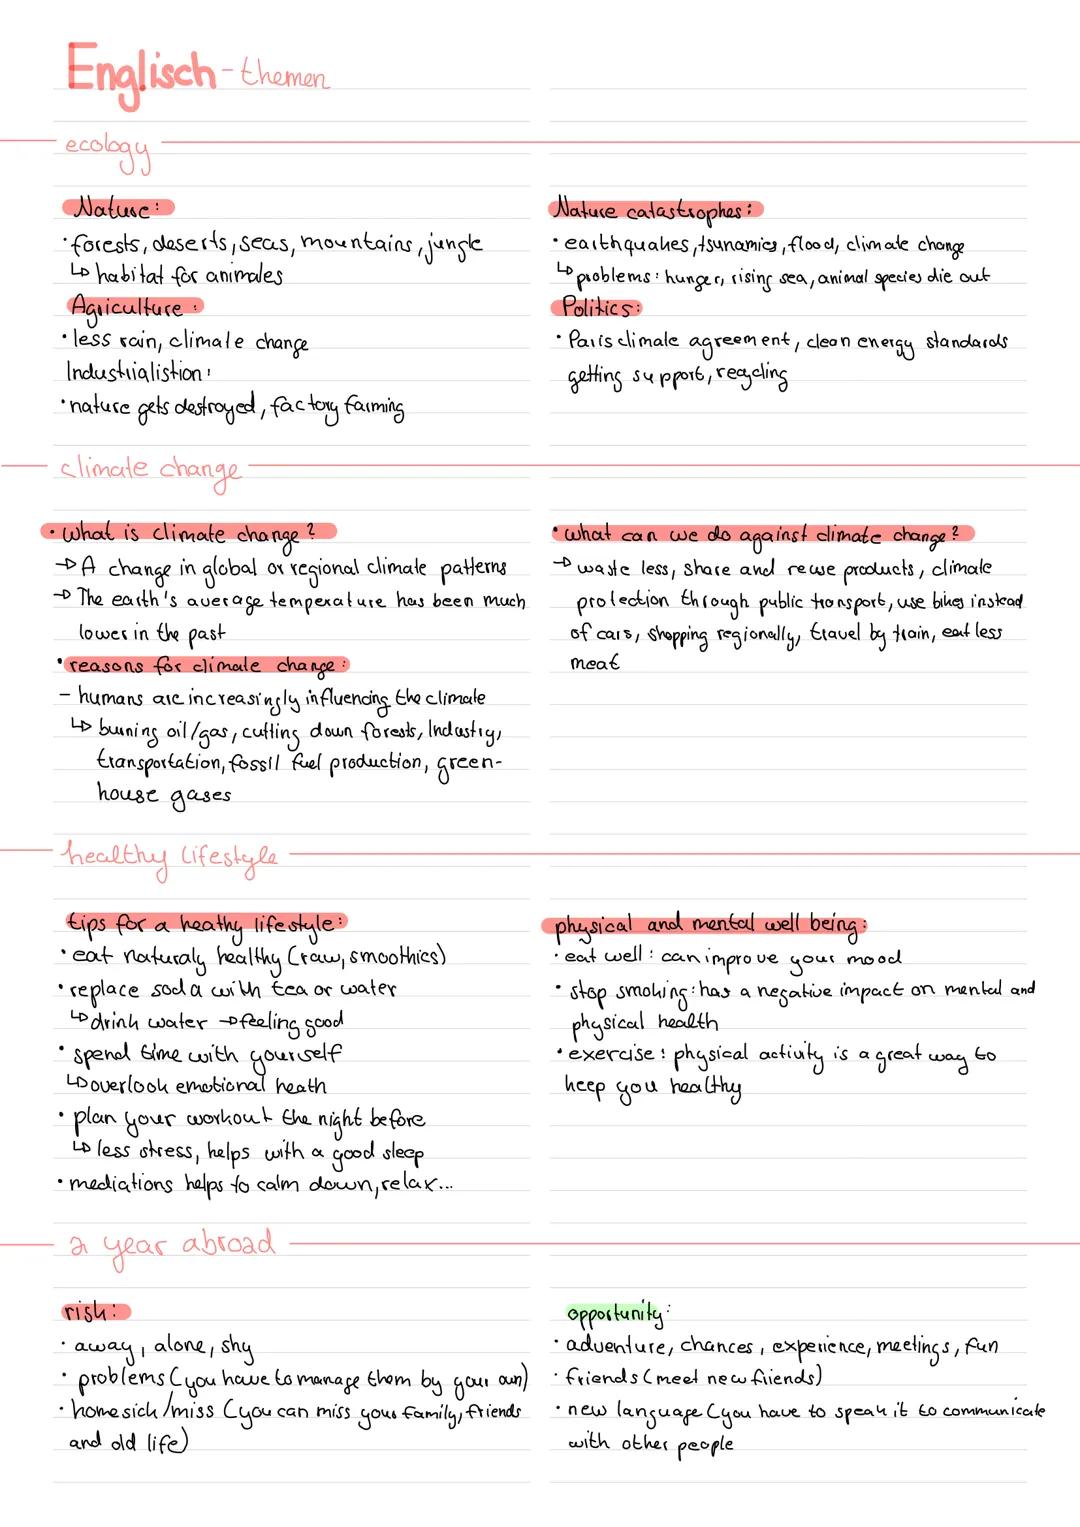 Englisch-themen
ecology
Nature:
• forests, deserts, seas, mountains, jungle
↳ habitat for animales
Agriculture:
• less rain, climate change
Industrialistion:
• nature gets destroyed, factory farming
Nature catastrophes:
• earthquakes, tsunamies, flood, climate change
↳ problems: hunger, rising sea, animal species die out
Politics:
• Paris climate agreement, clean energy standards
getting support, recycling
climate change
• what is climate change?
→ A change in global or regional climate patterns
→ The earth's average temperature has been much
lower in the past
• reasons for climate change:
- humans are increasingly influencing the climate
↳ burning oil/gas, cutting down forests, Industry,
transportation, fossil fuel production, green-
house gases
• what can we do against climate change?
→ waste less, share and reuse products, climate
protection through public transport, use bikes instead
of cars, shopping regionally, travel by train, eat less
meat
healthy lifestyle
tips for a heathy lifestyle:
• eat naturaly healthy (raw, smoothies)
• replace soda with tea or water
↳ drink water → feeling good
• spend time with yourself
↳ overlook emotional heath
• plan your workout the night before
↳ less stress, helps with a good sleep
• mediations helps to calm down, relax...
physical and mental well being:
• eat well: can improve your mood
• stop smoking: has a negative impact on mental and
physical health
• exercise: physical activity is a great way to
keep you healthy
a year abroad
risk:
• away, alone, shy
• problems (you have to manage them by your own)
• homesick/miss (you can miss your family, friends
and old life)
opportunity:
• adventure, chances, experience, meetings, fun
• friends (meet new friends)
• new language (you have to speak it to communicate
with other people